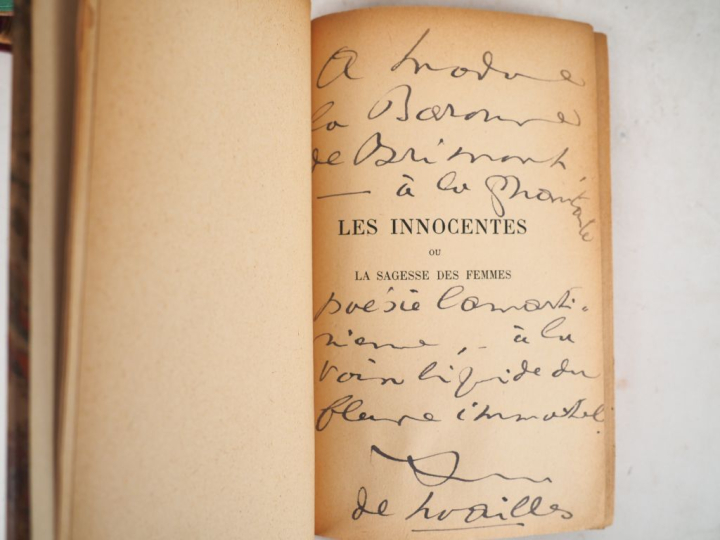 A Madame
la Baronne
de Brimont,
— à la Chantante
LES INNOCENTES
OU
LA SAGESSE DES FEMMES
poésie lamarti-
nienne, - à la
voix liquide du
fleuve immortel.
de Noailles